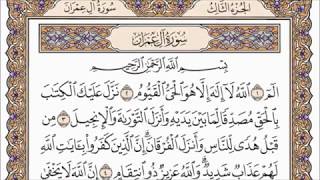 الجزء الثالث
سورة آل عمران
سورة آل عمران
بِسْمِ ٱللَّهِ ٱلرَّحْمَٰنِ ٱلرَّحِيمِ
الٓمٓ ١ ٱللَّهُ لَآ إِلَٰهَ إِلَّا هُوَ ٱلْحَىُّ ٱلْقَيُّومُ ٢ نَزَّلَ عَلَيْكَ ٱلْكِتَٰبَ
بِٱلْحَقِّ مُصَدِّقًا لِّمَا بَيْنَ يَدَيْهِ وَأَنزَلَ ٱلتَّوْرَىٰةَ وَٱلْإِنجِيلَ ٣ مِن
قَبْلُ هُدًى لِّلنَّاسِ وَأَنزَلَ ٱلْفُرْقَانَ ۗ إِنَّ ٱلَّذِينَ كَفَرُوا۟ بِـَٔايَٰتِ ٱللَّهِ
لَهُمْ عَذَابٌ شَدِيدٌ ۗ وَٱللَّهُ عَزِيزٌ ذُو ٱنتِقَامٍ ٤ إِنَّ ٱللَّهَ لَا يَخْفَىٰ